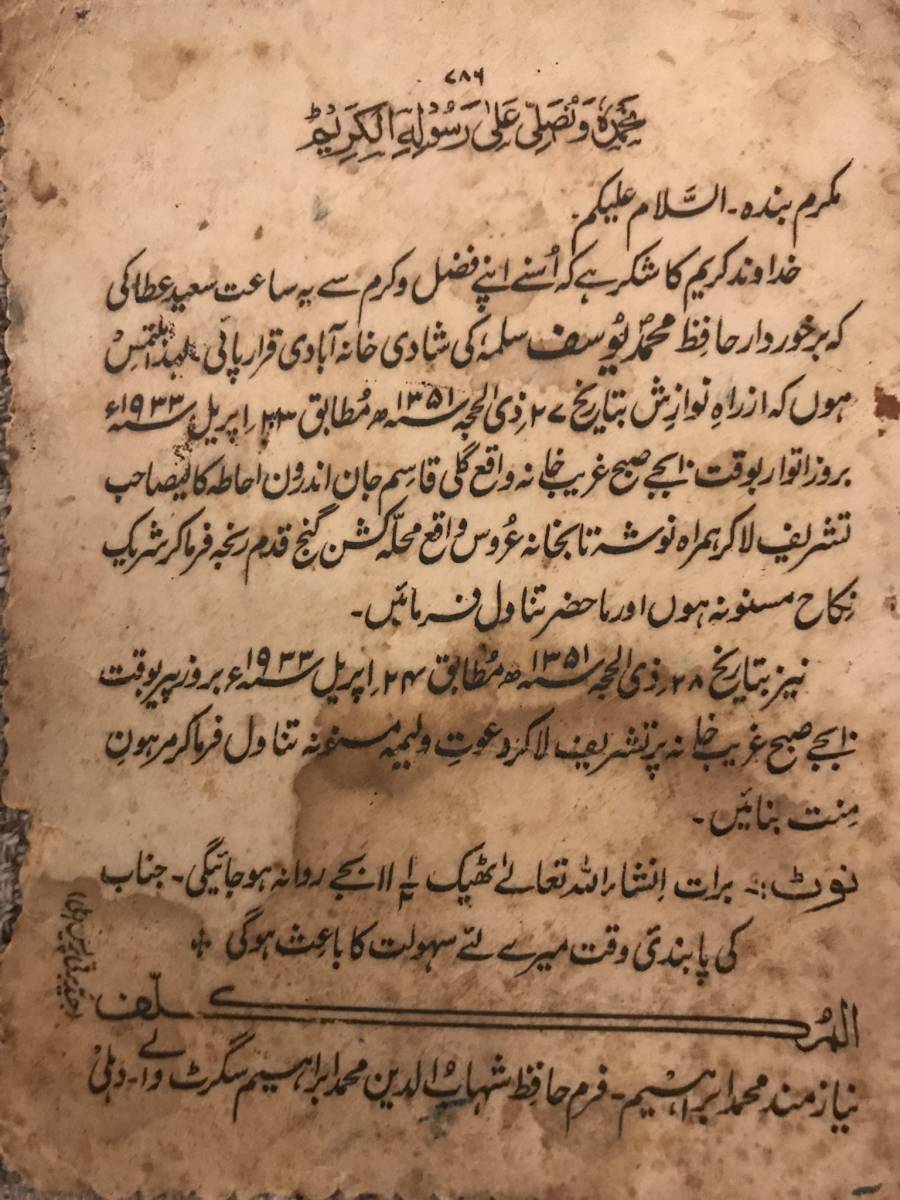 ۷۸۶
نَحْمَدُہٗ وَنُصَلِّی عَلٰی رَسُوْلِہِ الْکَرِیْمْ
مکرم بندہ۔ السَّلام علیکم۔
خداوند کریم کا شکر ہے کہ اُسنے اپنے فضل وکرم سے یہ ساعت سعید عطا کی
کہ برخوردار حافظ محمدؐ یُوسف سلمہٗ کی شادی خانہ آبادی قرار پائی لہٰذا ملتمس
ہوں کہ ازراہِ نوازش بتاریخ ۲۷؍ ذی الحجہ سنہ ۱۳۵۱ھ مُطابق ۲۳؍ اپریل سنہ ۱۹۳۳ء
بروز اتوار بوقت ۱۰ بجے صبح غریب خانہ واقع گلی قاسم جان اندرون احاطہ کالیصاحب
تشریف لاکر ہمراہ نوشہ تابخانہ عُروس واقع محلّہ کشن گنج قدم رنجہ فرماکر شریک
نِکاح مسنونہ ہوں اور ماحضر تناول فرمائیں۔
نیز بتاریخ ۲۸؍ ذی الحجہ سنہ ۱۳۵۱ھ مُطابق ۲۴؍ اپریل سنہ ۱۹۳۳ء بروز پیر بوقت
۱۰ بجے صبح غریب خانہ پر تشریف لاکر دعوتِ ولیمہ مسنونہ تناول فرماکر مرہونِ
مِنت بنائیں۔
نوٹ:۔ برات اِنشاء اللہ تعالےٰ ٹھیک ۱۱½ بجے روانہ ہوجائیگی۔ جناب
کی پابندیٔ وقت میرے لئے سہولت کا باعث ہوگی
المُکَلّف
نیاز مند محمد ابراہیم۔ فرم حافظ شہابُ الدین محمد ابراہیم سگرٹ والے۔ دہلی
برقی پریس دہلی